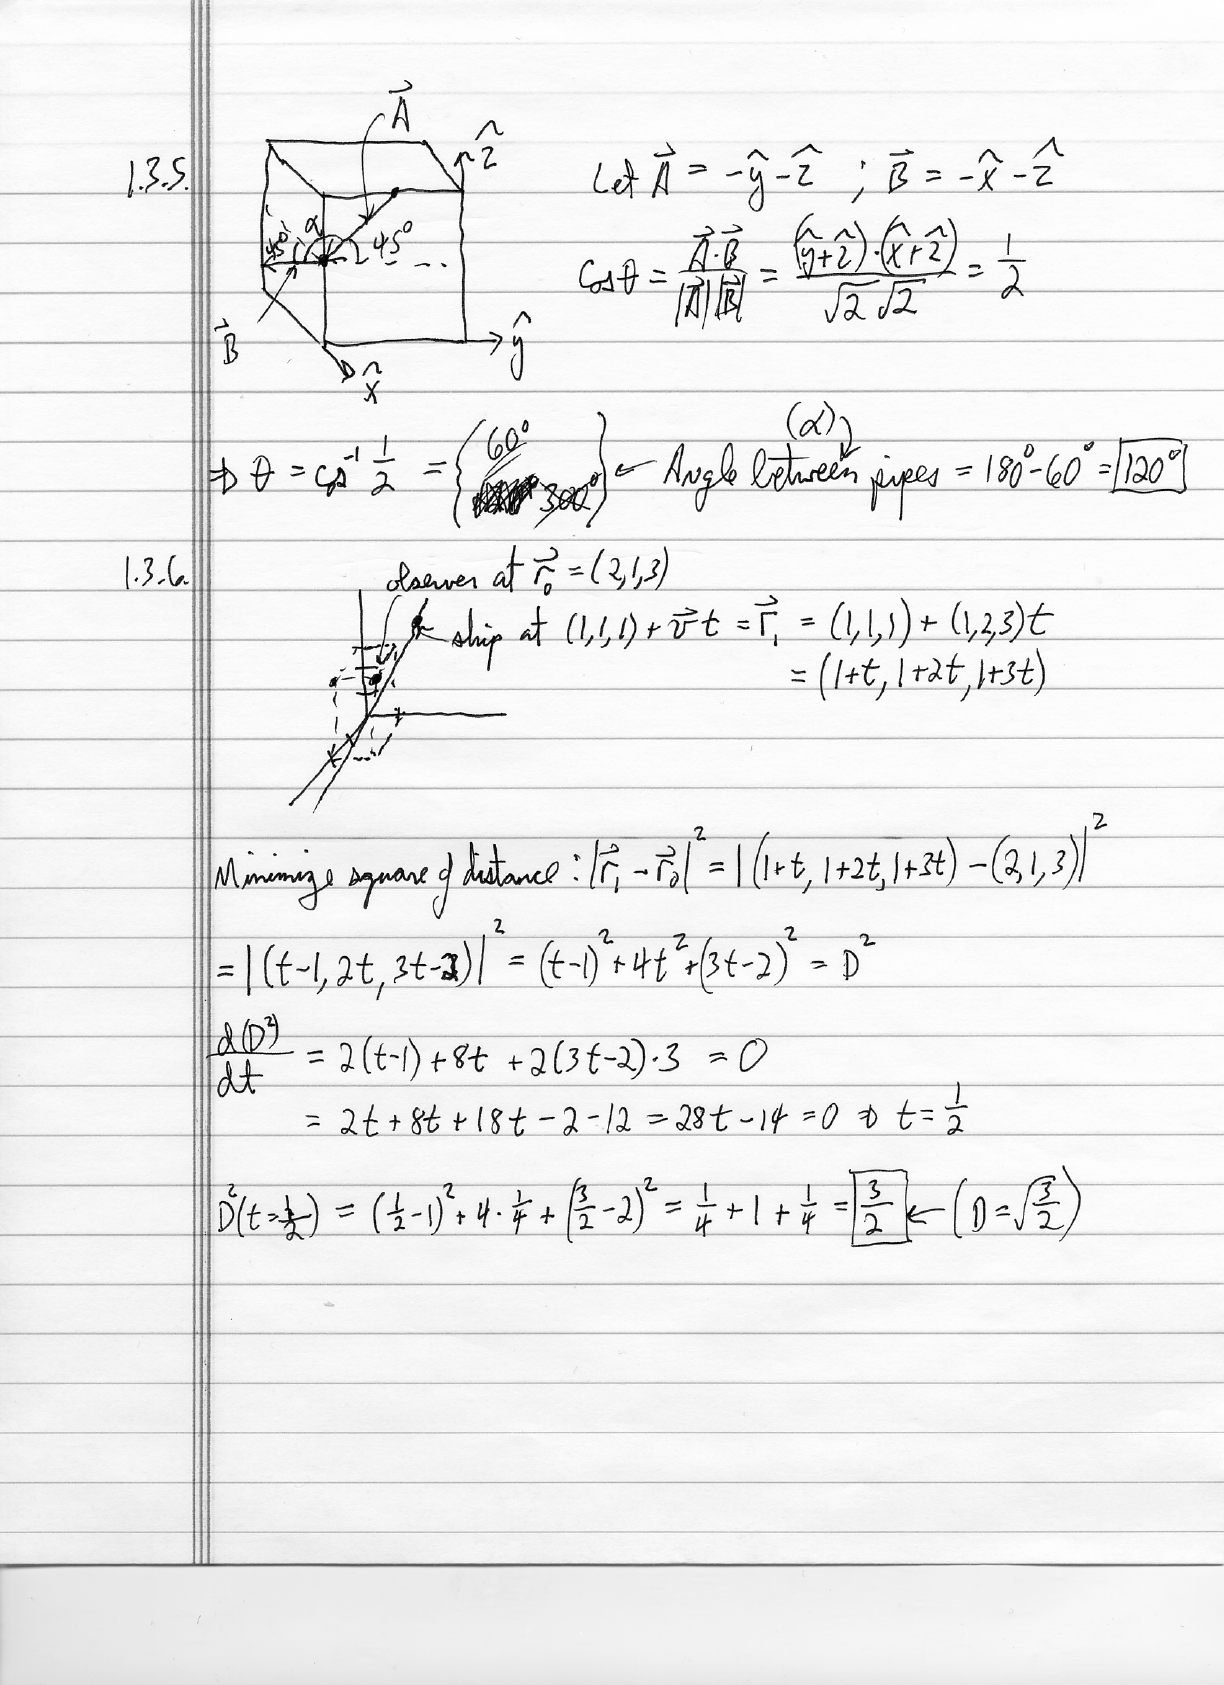 1.3.5.
A⃗
ẑ
α
45°
45°
B⃗
x̂
ŷ
Let A⃗ = -ŷ-ẑ ; B⃗ = -x̂-ẑ
Cosθ = A⃗·B⃗/|A⃗||B⃗| = (ŷ+ẑ)·(x̂+ẑ)/√2 √2 = 1/2
(α)
⇒ θ = cos⁻¹ 1/2 = {60° 300°} ← Angle between pipes = 180°-60° = 120°
1.3.6.
observer at r⃗₀ = (2,1,3)
ship at (1,1,1) + v⃗t = r⃗₁ = (1,1,1) + (1,2,3)t
= (1+t, 1+2t, 1+3t)
Minimize square of distance: |r⃗₁ - r⃗₀|² = |(1+t, 1+2t, 1+3t) - (2,1,3)|²
= |(t-1, 2t, 3t-2)|² = (t-1)² + 4t² + (3t-2)² = D²
d(D²)/dt = 2(t-1) + 8t + 2(3t-2)·3 = 0
= 2t + 8t + 18t - 2 - 12 = 28t - 14 = 0 ⇒ t = 1/2
D²(t=1/2) = (1/2 - 1)² + 4·1/4 + (3/2 - 2)² = 1/4 + 1 + 1/4 = 3/2 ← (D = √3/2)